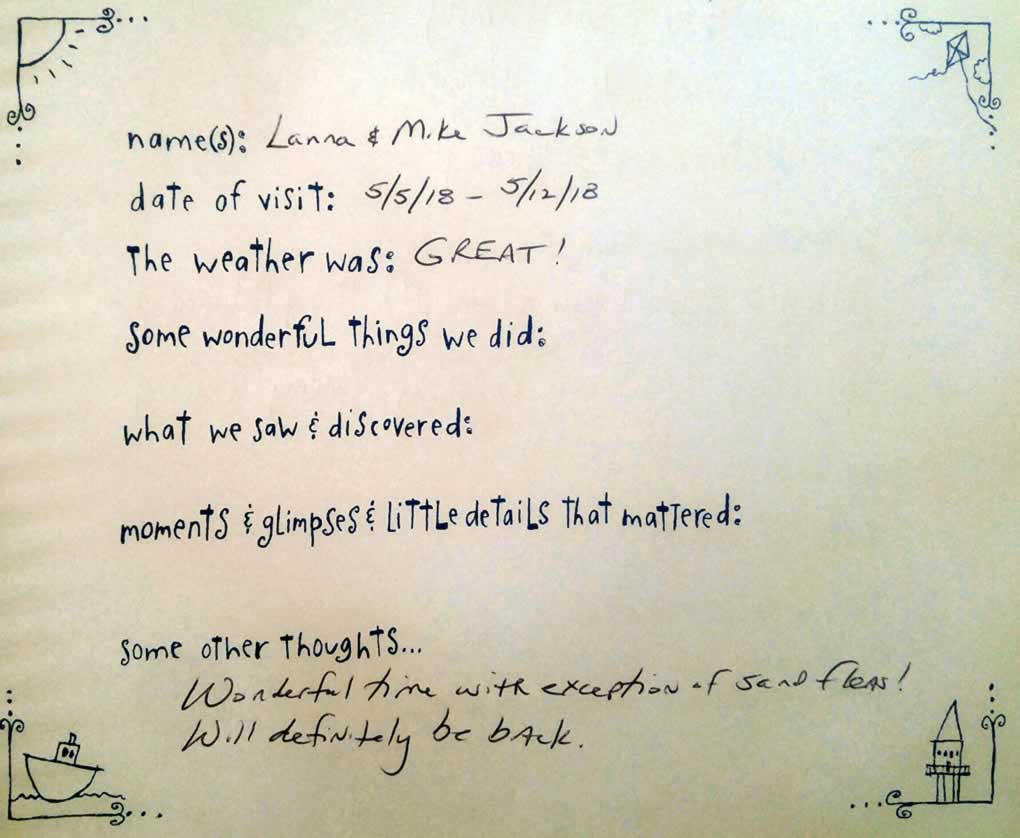 name(s): Lanna & Mike Jackson
date of visit: 5/5/18 - 5/12/18
The weather was: GREAT!
some wonderful things we did:
what we saw & discovered:
moments & glimpses & little details that mattered:
some other thoughts...
Wonderful time with exception of sand fleas!
Will definitely be back.